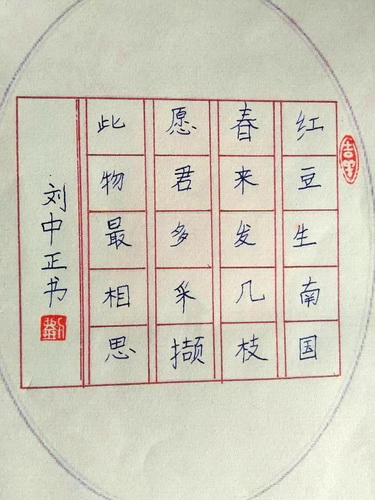 红豆生南国
春来发几枝
愿君多采撷
此物最相思
刘中正书